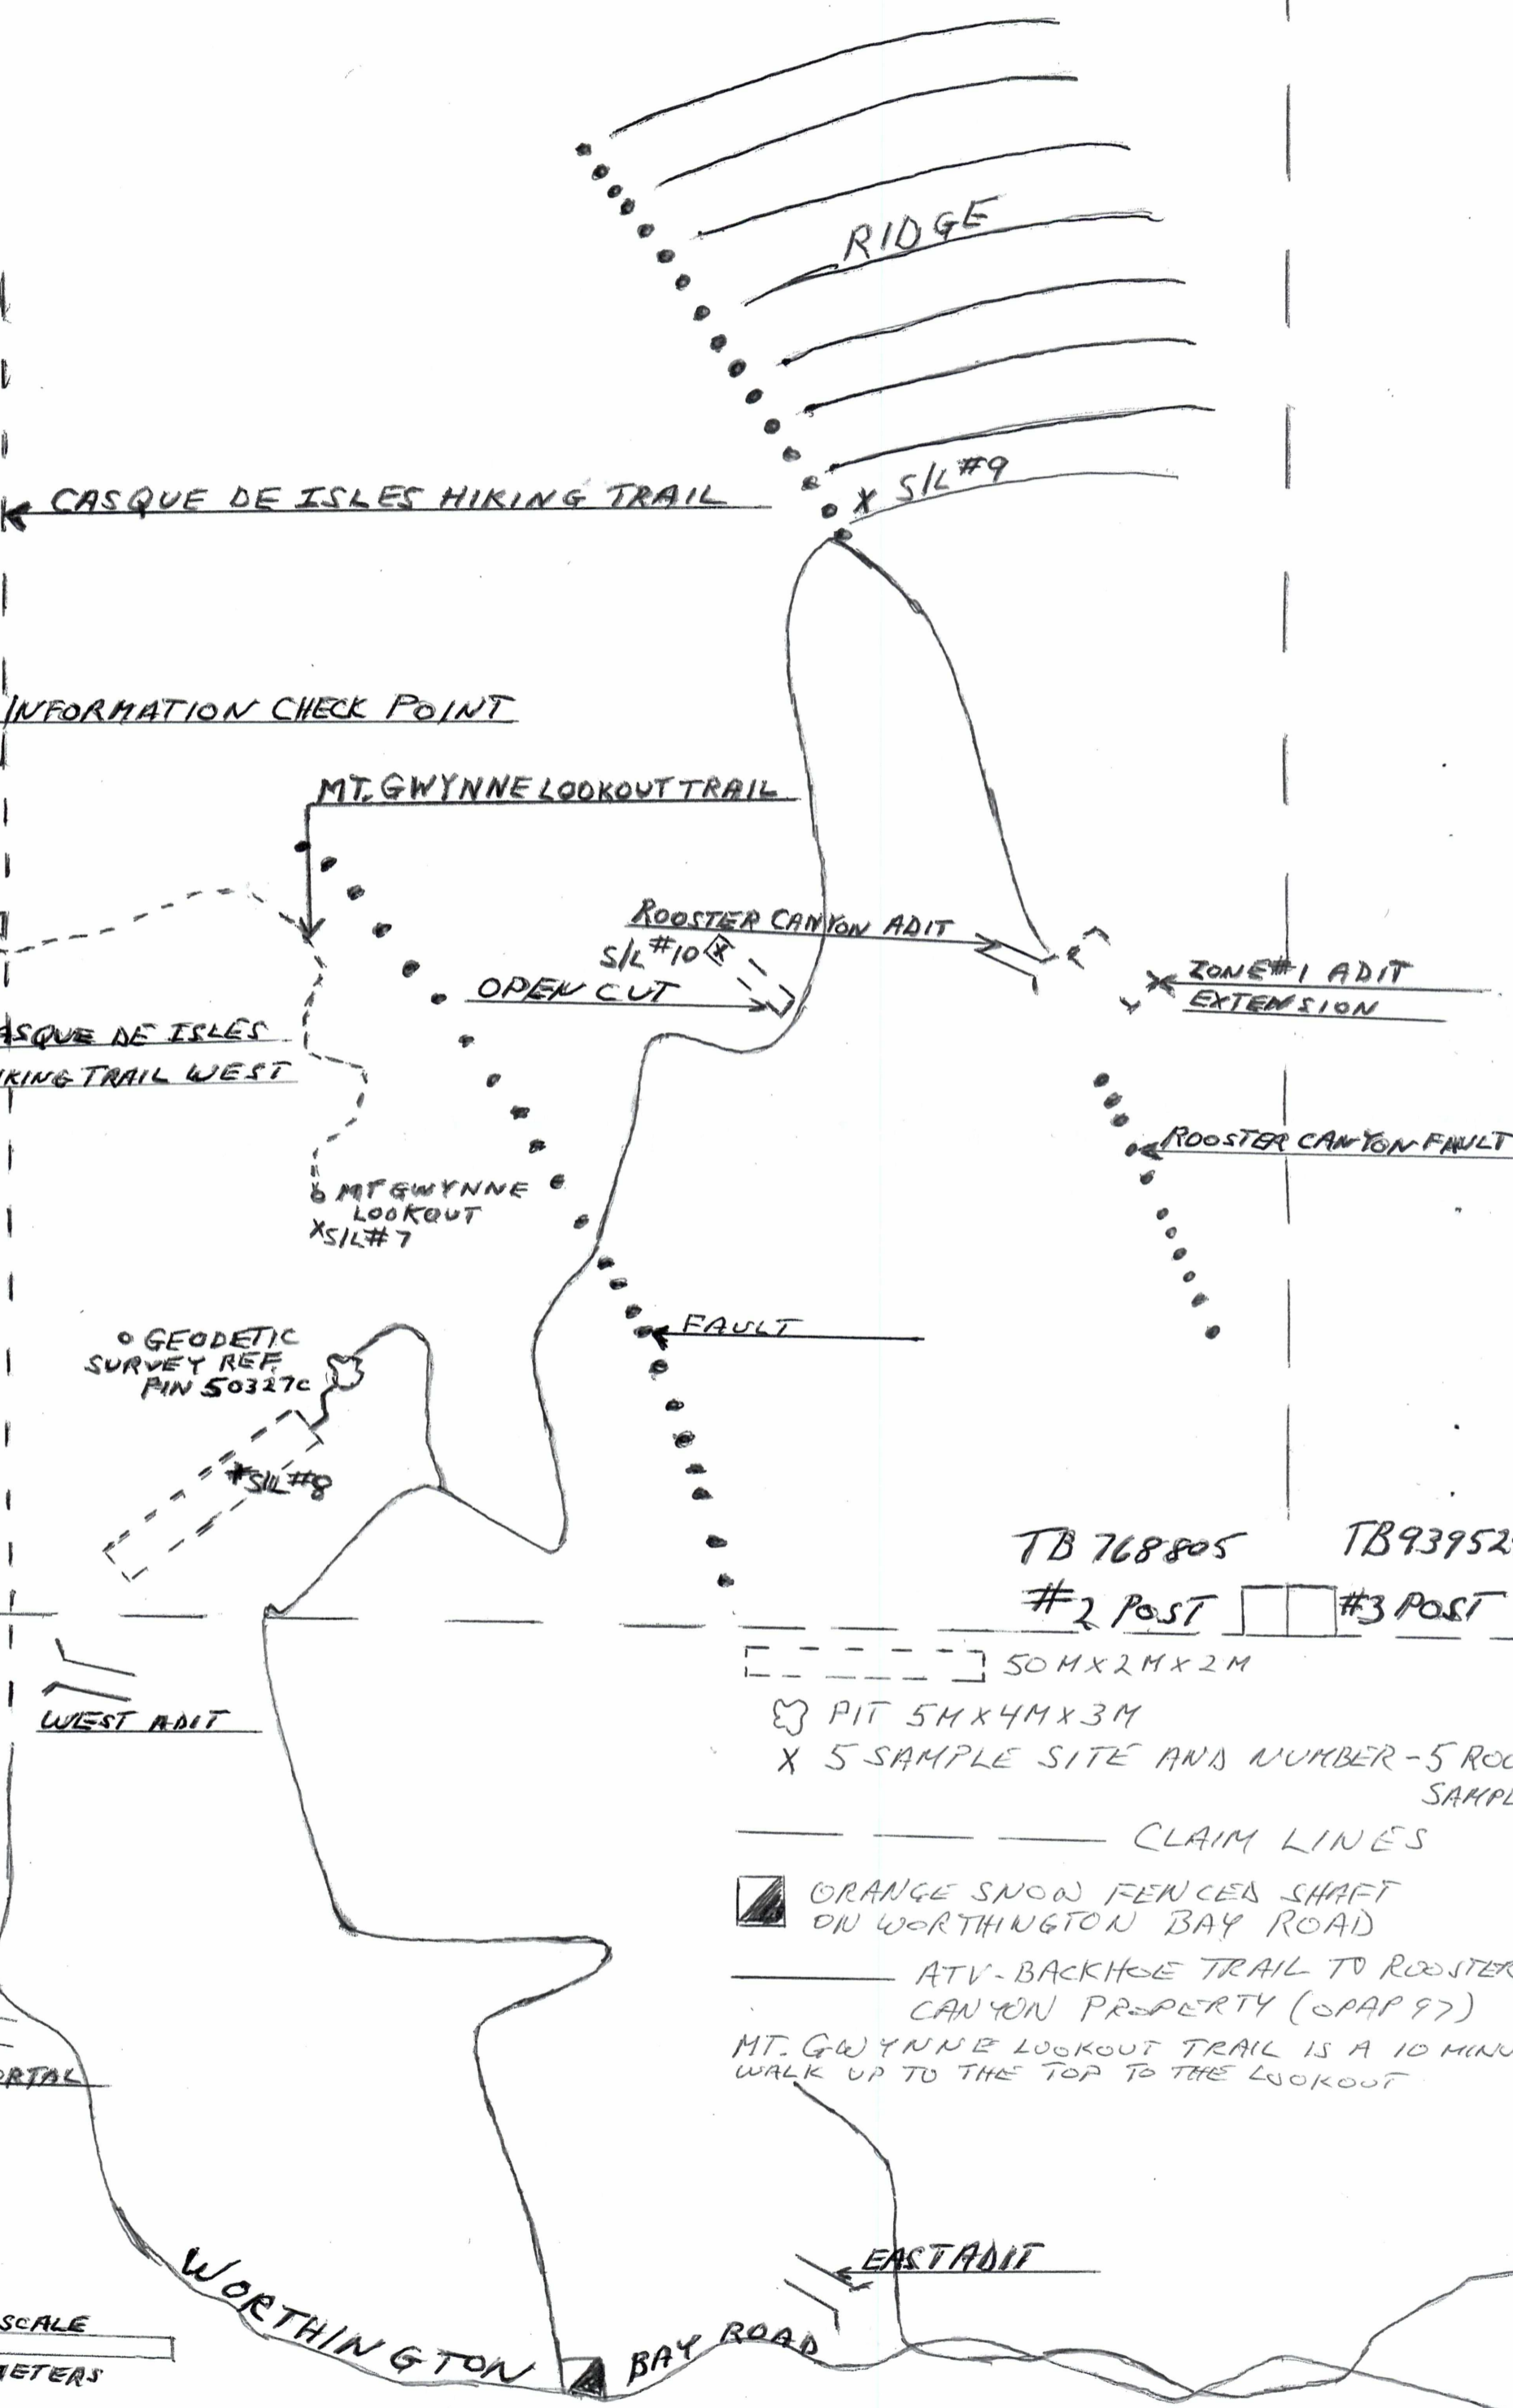 RIDGE
X S/L #9
CASQUE DE ISLES HIKING TRAIL
INFORMATION CHECK POINT
MT. GWYNNE LOOKOUT TRAIL
ROOSTER CANYON ADIT
S/L #10 X
ZONE #1 ADIT
EXTENSION
OPEN CUT
ASQUE DE ISLES
IKING TRAIL WEST
ROOSTER CANYON FAULT
MT GWYNNE
LOOKOUT
X S/L #7
FAULT
GEODETIC
SURVEY REF.
PIN 50327C
X S/L #8
TB 768805
TB93952
#2 POST
#3 POST
50 M X 2 M X 2 M
WEST ADIT
PIT 5M X 4M X 3M
X 5 SAMPLE SITE AND NUMBER - 5 ROC
SAMPL
CLAIM LINES
ORANGE SNOW FENCED SHAFT
ON WORTHINGTON BAY ROAD
ATV-BACKHOE TRAIL TO ROOSTER
CANYON PROPERTY (OPAP 97)
MT. GWYNNE LOOKOUT TRAIL IS A 10 MINU
WALK UP TO THE TOP TO THE LOOKOUT
ORTAL
EAST ADIT
WORTHINGTON BAY ROAD
SCALE
METERS